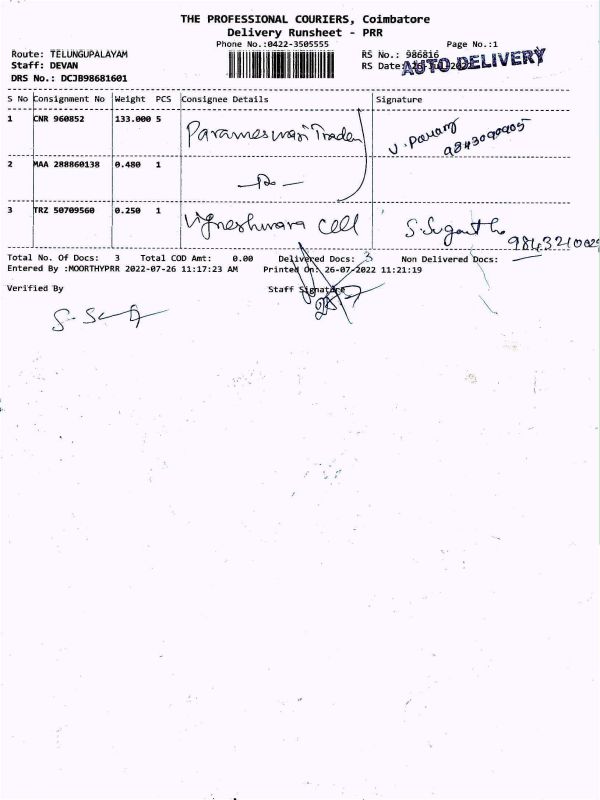 THE PROFESSIONAL COURIERS, Coimbatore
Delivery Runsheet - PRR
Phone No.:0422-3505555
Page No.:1
Route: TELUNGUPALAYAM
RS No.: 986816
Staff: DEVAN
RS Date:
AUTO DELIVERY
DRS No.: DCJB98681601
S No Consignment No Weight PCS Consignee Details Signature
1 CNR 960852 133.000 5 Parameswari Traders
9843090905
2 MAA 288860138 0.480 1
3 TRZ 50709560 0.250 1 Vigneshwara Cell
Total No. Of Docs: 3 Total COD Amt: 0.00 Delivered Docs: 3 Non Delivered Docs:
Entered By :MOORTHYPRR 2022-07-26 11:17:23 AM Printed On: 26-07-2022 11:21:19
Verified By Staff Signature